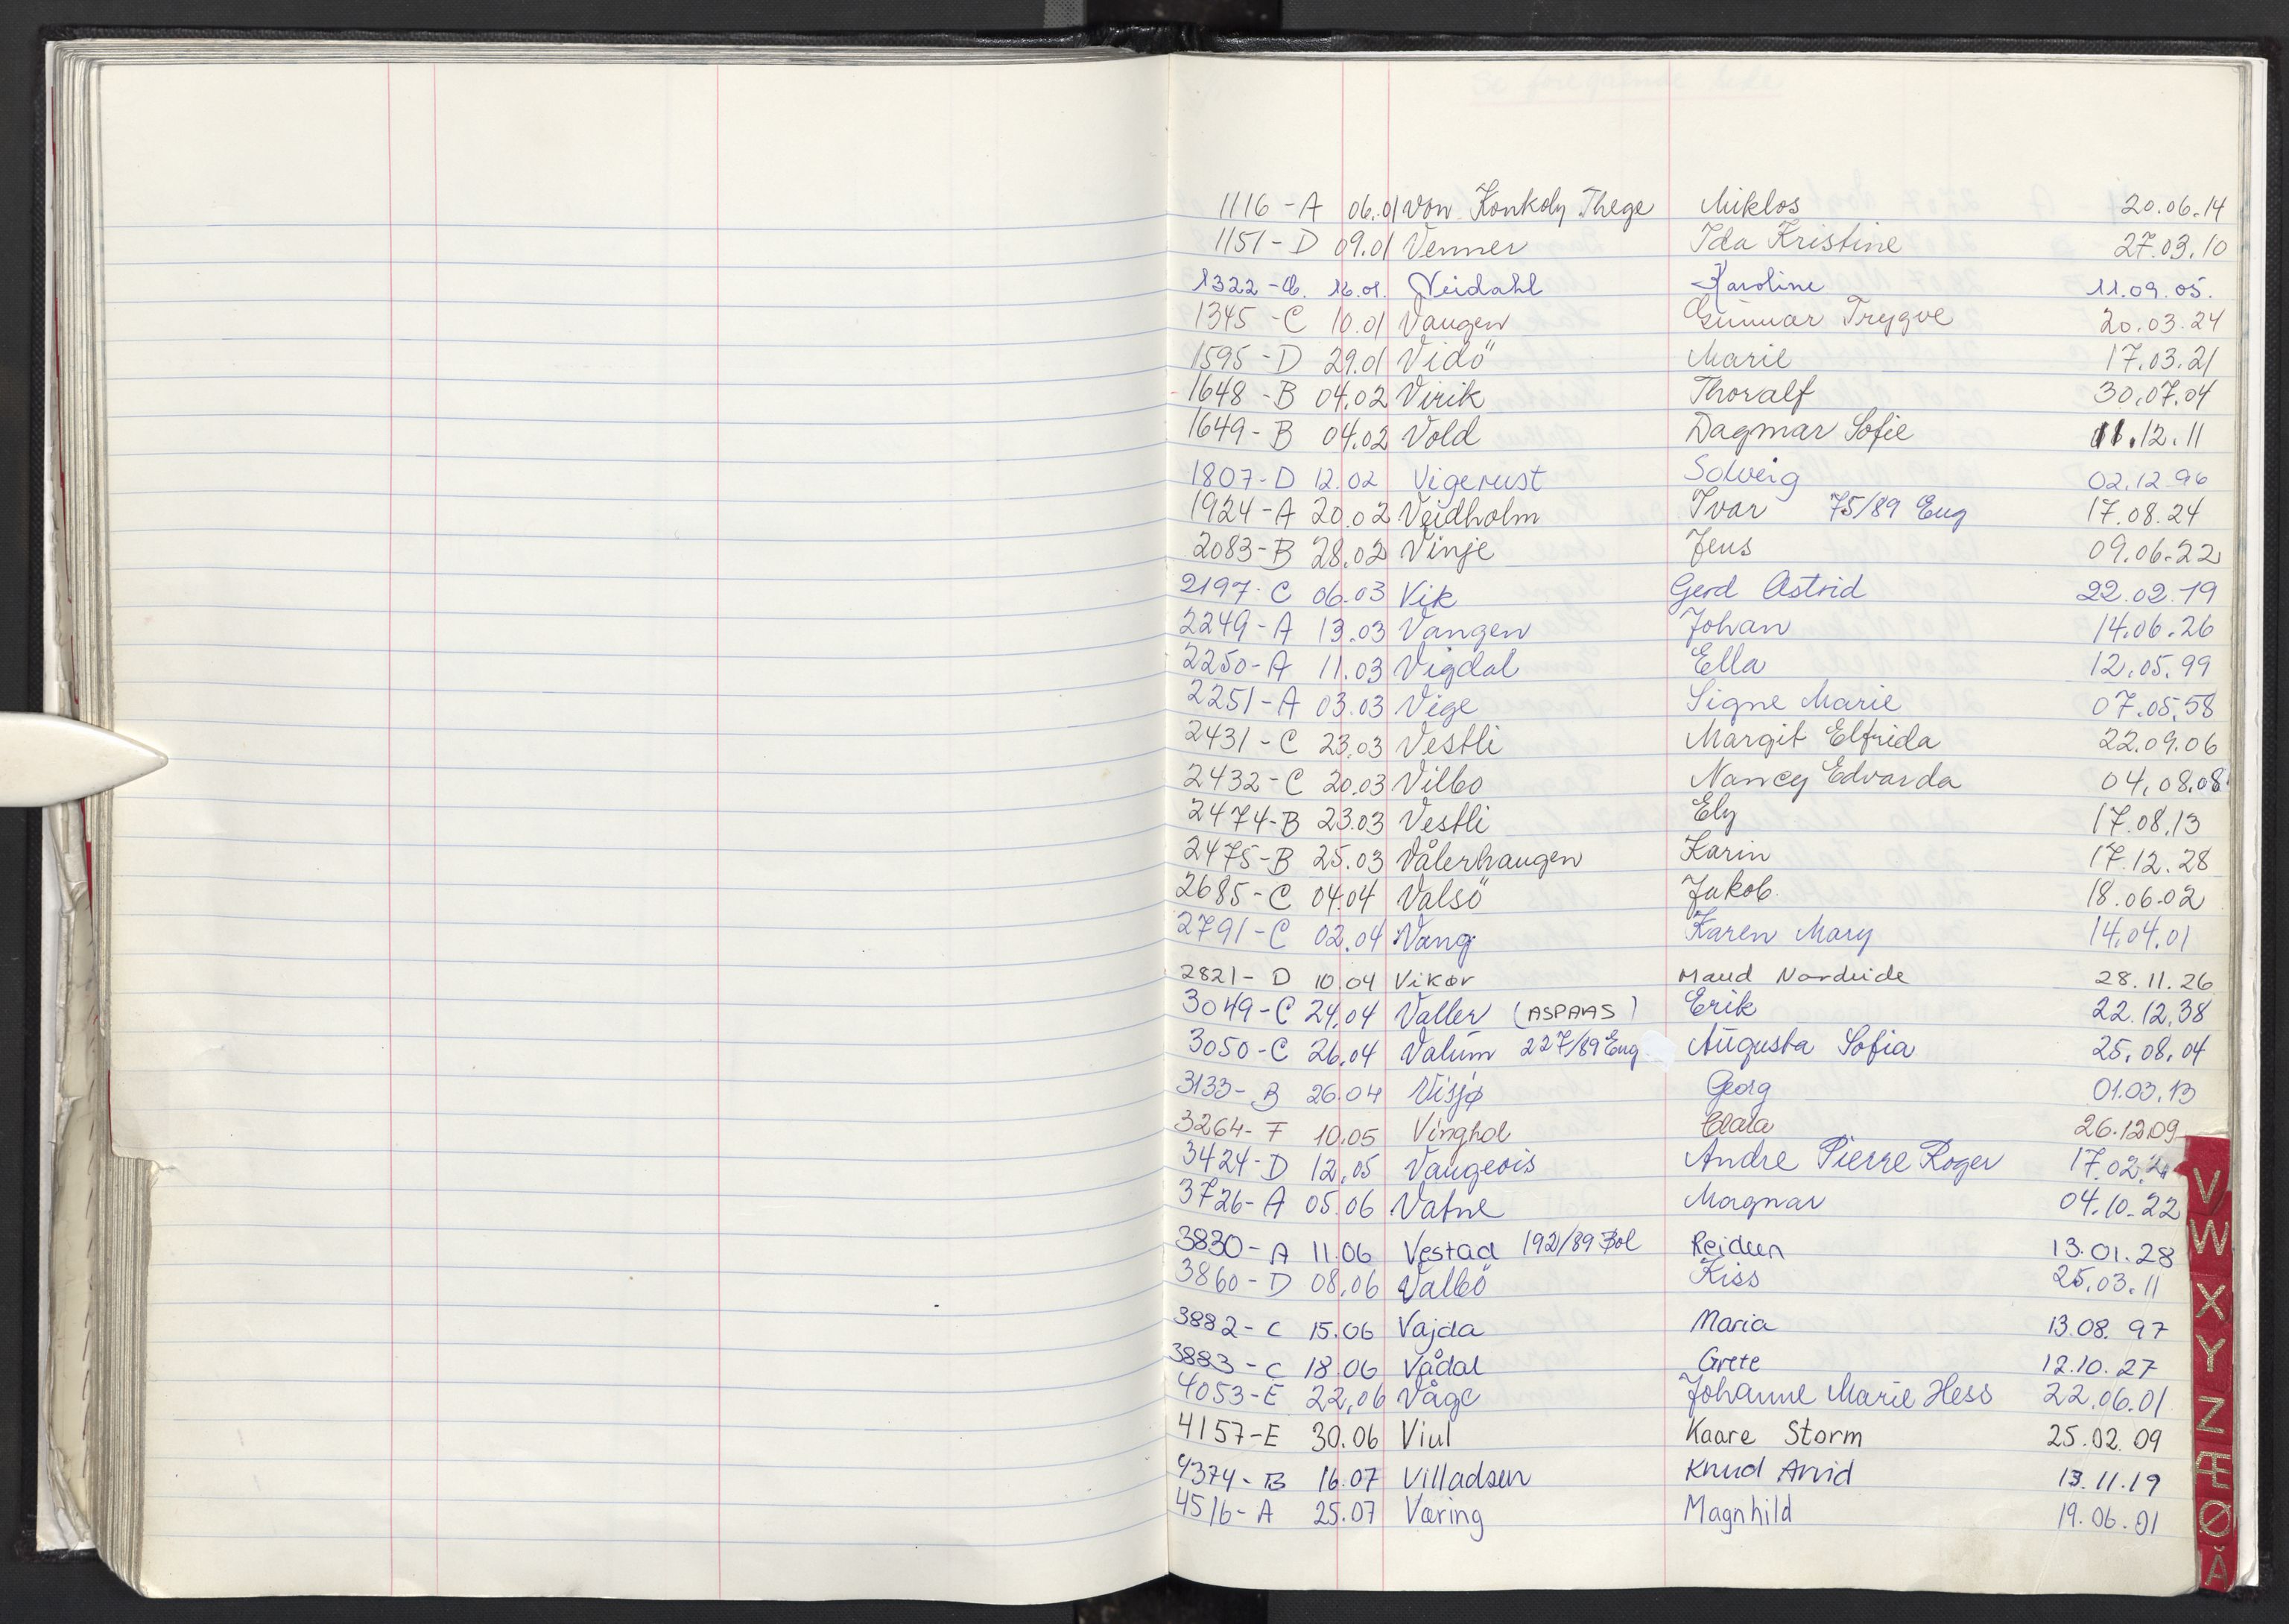 1116 - A 06.01 von Konkoly Thege Miklos 20.06.14
1151 - D 09.01 Venner Ida Kristine 27.03.10
1322 - C. 16.01. Veidahl Karoline 11.09.05.
1345 - C 10.01 Vangen Gunnar Trygve 20.03.24
1595 - D 29.01 Vidö Marie 17.03.21
1648 - B 04.02 Virik Thoralf 30.07.04
1649 - B 04.02 Vold Dagmar Sofie 11.12.11
1807 - D 12.02 Vigerust Solveig 02.12.96
1924 - A 20.02 Veidholm Ivar 75/89 Eug 17.08.24
2083 - B 28.02 Vinje Jens 09.06.22
2197 - C 06.03 Vik Gerd Astrid 22.02.19
2249 - A 13.03 Vangen Johan 14.06.26
2250 - A 11.03 Vigdal Ella 12.05.99
2251 - A 03.03 Vige Signe Marie 07.05.58
2431 - C 23.03 Vestli Margit Elfrida 22.09.06
2432 - C 20.03 Vilbo Nancy Edvarda 04.08.08
2474 - B 23.03 Vestli Ely 17.08.13
2475 - B 25.03 Vålerhaugen Karin 17.12.28
2685 - C 04.04 Valsö Jakob 18.06.02
2791 - C 02.04 Vang Karen Mary 14.04.01
2821 - D 10.04 Vikør Maud Nordeide 28.11.26
3049 - C 24.04 Valler (ASPAAS) Erik 22.12.38
3050 - C 26.04 Valum 227/89 Eug Augusta Sofia 25.08.04
3133 - B 26.04 Visjø Georg 01.03.13
3264 - F 10.05 Vinghol Clara 26.12.09
3424 - D 12.05 Vaugeois Andre Pierre Roger 17.02.
3726 - A 05.06 Vatne Magnar 04.10.22
3830 - A 11.06 Vestad 192/89 Bol Reidun 13.01.28
3860 - D 08.06 Valbö Kiss 25.03.11
3882 - C 15.06 Vajda Maria 13.08.97
3883 - C 18.06 Vådal Grete 12.10.27
4053 - E 22.06 Våge Johanne Marie Hess 22.06.01
4157 - E 30.06 Viul Kaare Storm 25.02.09
4374 - B 16.07 Villadsen Knud Arvid 13.11.19
4516 - A 25.07 Væring Magnhild 19.06.01
V
W
X
Y
Z
Æ
Ø
Å